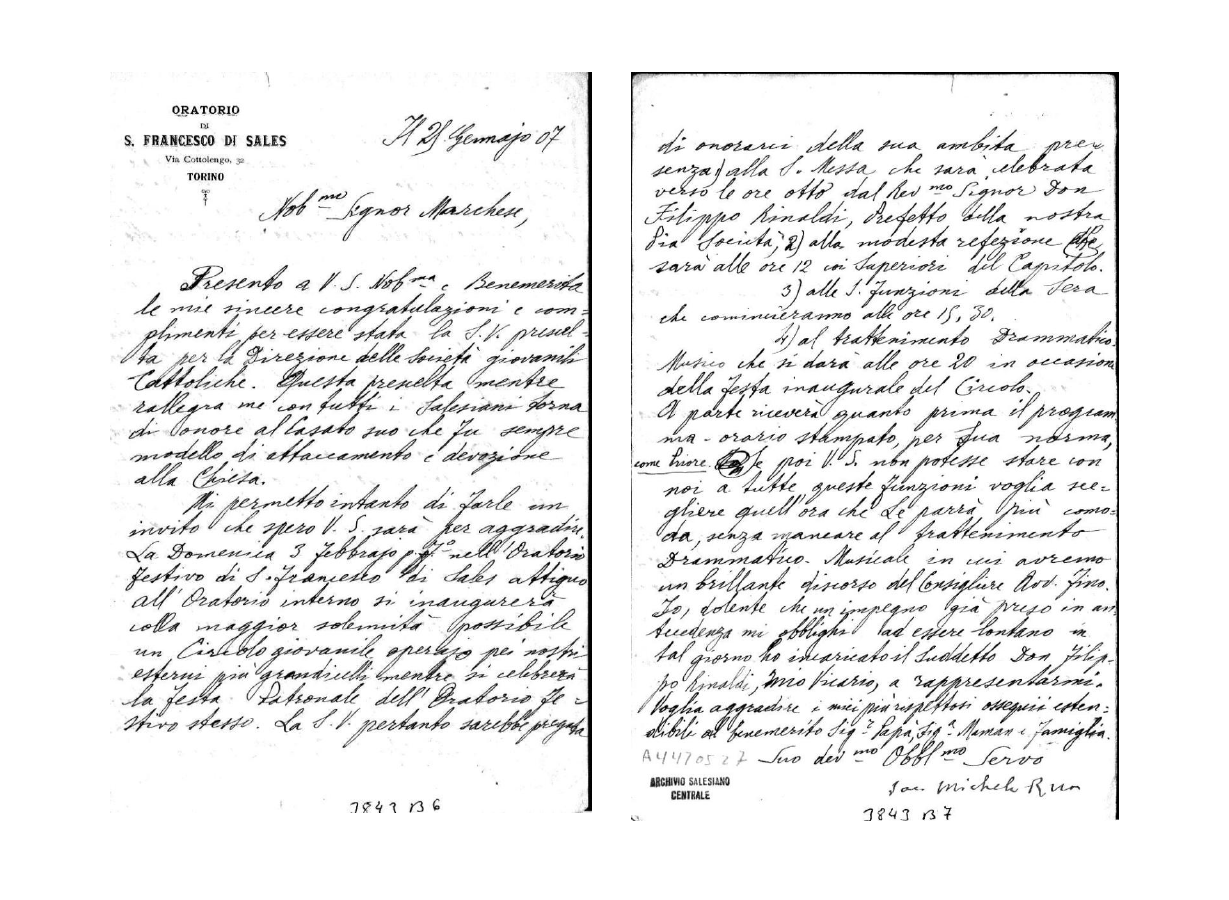 ORATORIO
DI
S. FRANCESCO DI SALES
Via Cottolengo, 32
TORINO
Il Gennajo 07
Nob.me Signor Marchese,
Presento a V. S. Nob.ma e Benemerita
le mie sincere congratulazioni e com=
plimenti per essere stata la S. V. prescel-
ta per la Direzione delle Società giovanili
Cattoliche. Questa prescelta mentre
rallegra me con tutti i Salesiani torna
di onore al casato suo che fu sempre
modello di attaccamento e devozione
alla Chiesa.
Mi permetto intanto di farle un
invito che spero V. S. sarà per aggradire.
La Domenica 3 febbrajo nell'Oratorio
festivo di S. Francesco di Sales attiguo
all'Oratorio interno si inaugurerà
colla maggior solennità possibile
un Circolo giovanile operajo pei nostri
esterni più grandicelli mentre si celebrerà
la festa Patronale dell'Oratorio fe-
stivo stesso. La S. V. pertanto sarebbe pregata
3843 B 6
di onorarci della sua ambita pre=
senza 1) alla S. Messa che sarà celebrata
verso le ore otto dal Rev.mo Signor Don
Filippo Rinaldi, Prefetto della nostra
Pia Società; 2) alla modesta refezione che
sarà alle ore 12 coi Superiori del Capitolo.
3) alle S. funzioni della Sera
che comincieranno alle ore 15,30.
4) al trattenimento Drammatico.
Musico che si darà alle ore 20 in occasione
della festa inaugurale del Circolo.
A parte riceverà quanto prima il program
ma-orario stampato, per Sua norma,
come Priore. Se poi V. S. non potesse stare con
noi a tutte queste funzioni voglia sce=
gliere quell'ora che Le parrà più como=
da, senza mancare al trattenimento
Drammatico. Musicale in cui avremo
un brillante discorso del Consigliere Avv. Fino.
Io, dolente che un impegno già preso in an
tecedenza mi obblighi ad essere lontano in
tal giorno ho incaricato il Suddetto Don Filip-
po Rinaldi, mio Vicario, a rappresentarmi.
Voglia aggradire i miei più rispettosi ossequii esten=
dibili al benemerito Sig.r Papà, Sig.a Maman e famiglia.
A4470527 Suo dev.mo Obbl.mo Servo
ARCHIVIO SALESIANO
CENTRALE
Sac. Michele Rua
3843 B 7